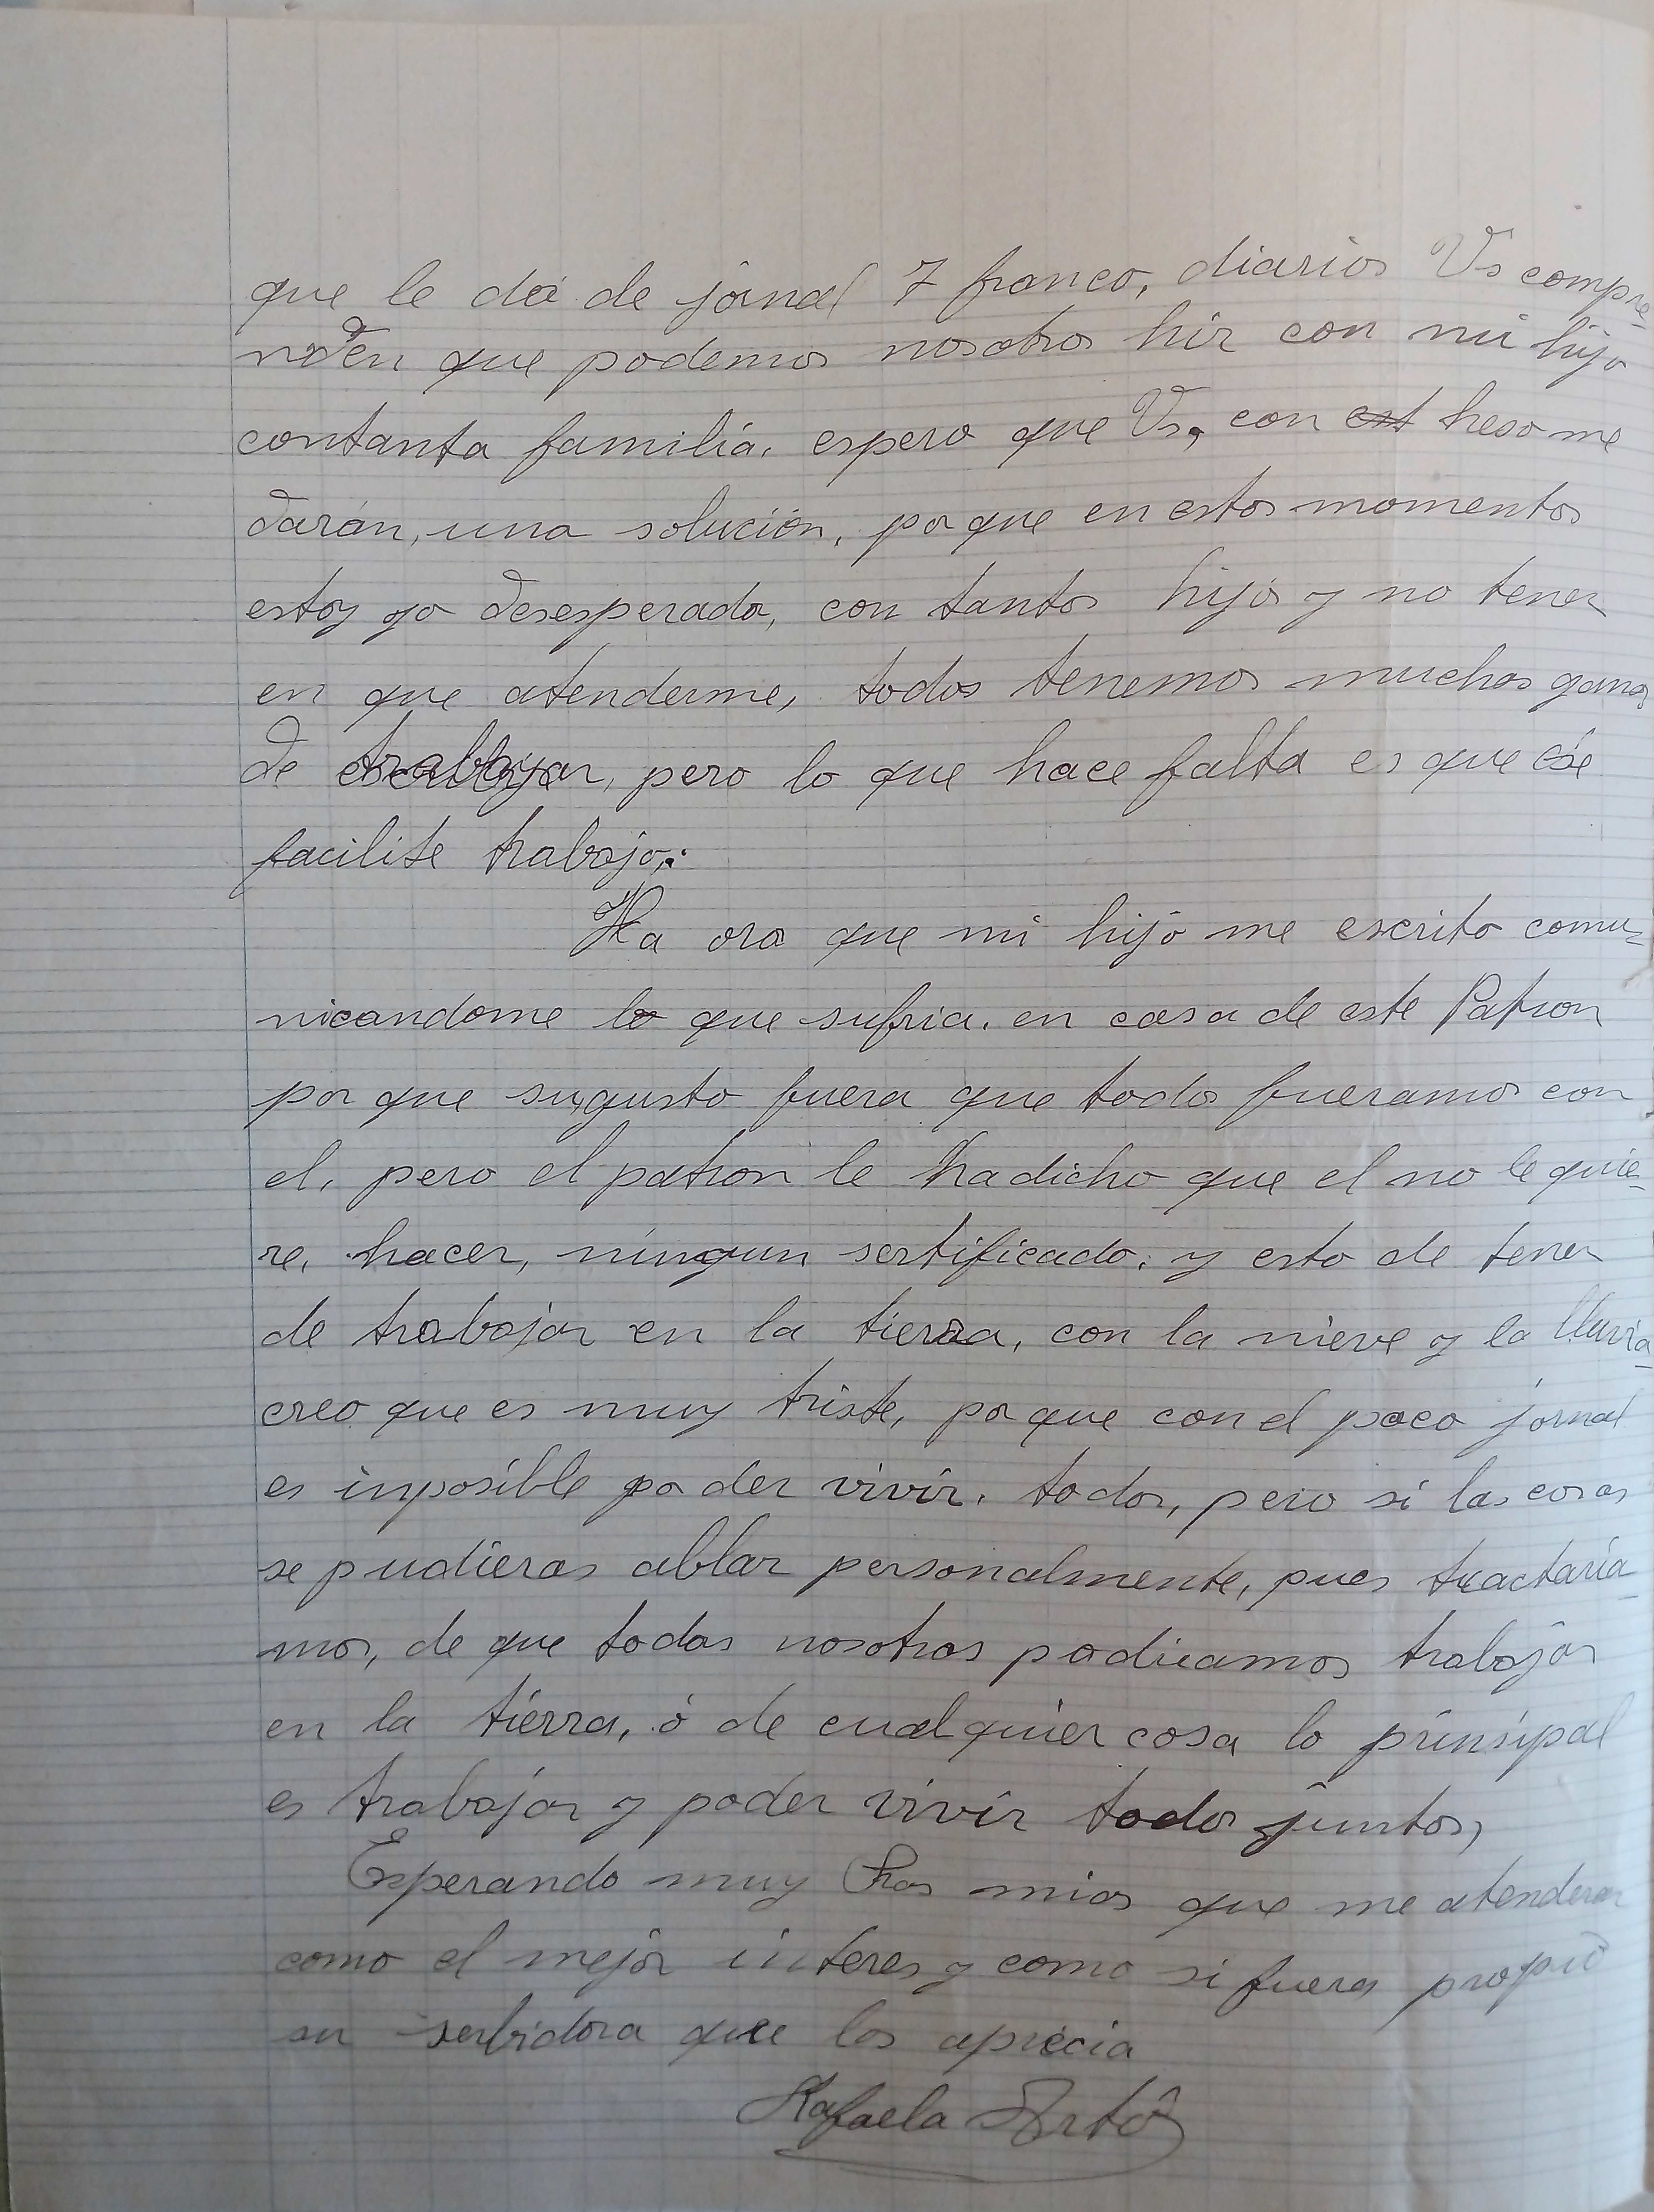 que le dá de jornal 7 franco, diarios Vs compre-
nden que podemos nosotros hir con mi hijo
contanta familia. espero que Vs, con est heso me
darán, una solución, por que en estos momentos
estoy yo desesperada, con tantos hijos y no tener
en que atenderme, todos tenemos muchas ganas
de trabajar, pero lo que hace falta es que se
facilite trabajo.
Ha ora que mi hijo me escrito comu-
nicandome lo que sufria. en casa de este Patron
por que sugusto fuera que todos fueramos con
el, pero el patron le hadicho que el no le quie-
re, hacer, ningun sertificado. y esto de tener
de trabajar en la tierra, con la nieve y la lluvia
creo que es muy triste, por que con el poco jornal
es inposible po der vivir. todos, pero si las cosas
se pudieras ablar personalmente, pues tractaria-
mos, de que todas nosotras podriamos trabajar
en la tierra, ó de cualquier cosa lo prinsipal
es trabajar y poder vivir todos juntos,
Esperando muy Sras mias que me atenderan
como el mejor interes y como si fueras propio
su serbidora que los aprecia
Rafaela Artó